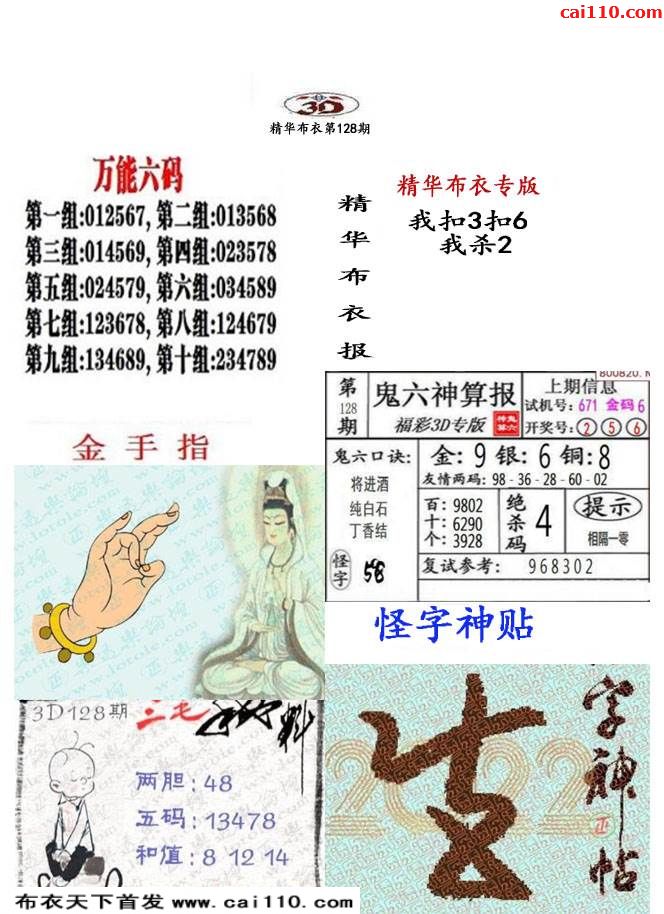 cai110.com
3D
精华布衣第128期
万能六码
第一组:012567, 第二组:013568
第三组:014569, 第四组:023578
第五组:024579, 第六组:034589
第七组:123678, 第八组:124679
第九组:134689, 第十组:234789
精华布衣报
精华布衣专版
我扣3扣6
我杀2
第128期
鬼六神算报
福彩3D专版
上期信息
试机号: 671 金码 6
开奖号: 2 5 6
鬼六口诀:
将进酒
纯白石
丁香结
怪字 58
金: 9 银: 6 铜: 8
友情两码: 98-36-28-60-02
百: 9802
十: 6290
个: 3928
绝杀码 4
提示
相隔一零
复试参考: 968302
金手指
怪字神贴
3D128期 三毛
两胆: 48
五码: 13478
和值: 8 12 14
字神帖
2022
布衣天下首发 www.cai110.com